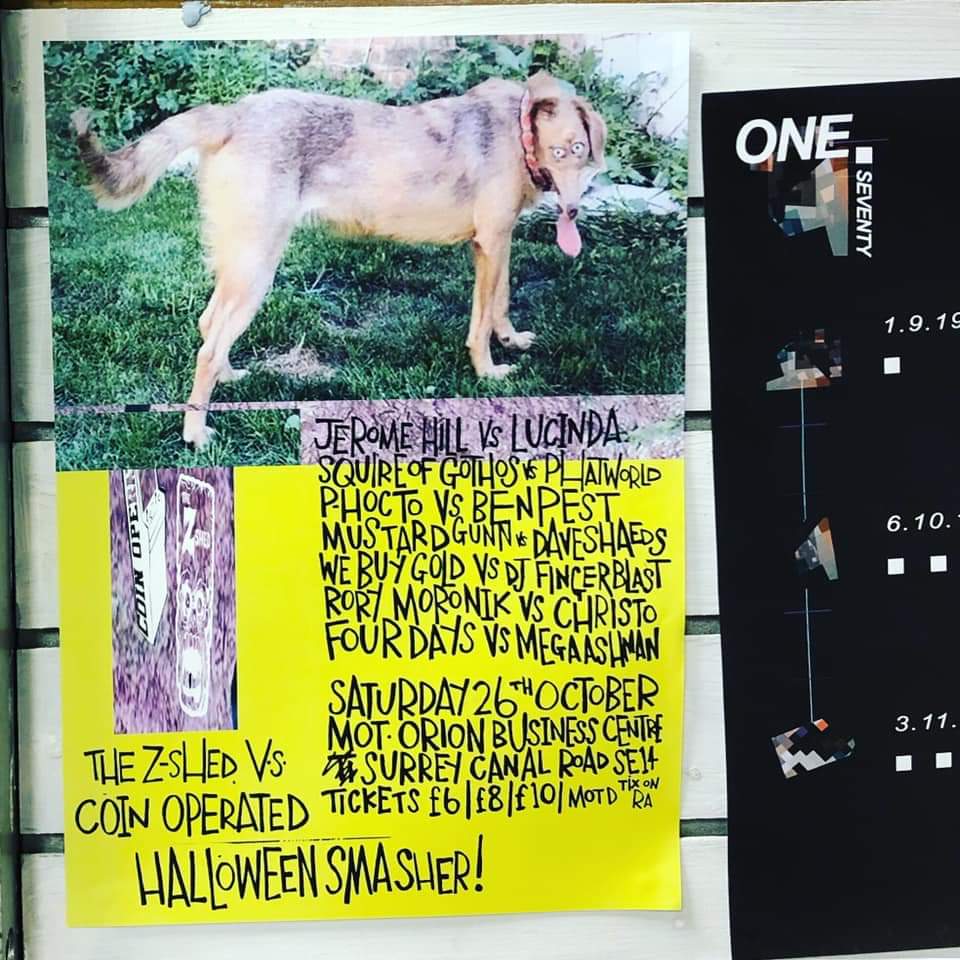 JEROME HILL VS LUCINDA
SQUIRE OF GOTHOS VS PHATWORLD
P-HOCTO VS BEN PEST
MUSTARD GUNN VS DAVE SHAEDS
WE BUY GOLD VS DJ FINGERBLAST
RORY MORONIK VS CHRISTO
FOUR DAYS VS MEGAASHMAN
SATURDAY 26TH OCTOBER
MOT. ORION BUSINESS CENTRE
SURREY CANAL ROAD SE14
TICKETS £6|£8|£10| MOTD TIX ON RA
COIN OPERA
Z SHED
THE Z-SHED VS
COIN OPERATED
HALLOWEEN SMASHER!
ONE.
SEVENTY
1.9.19
6.10.
3.11.